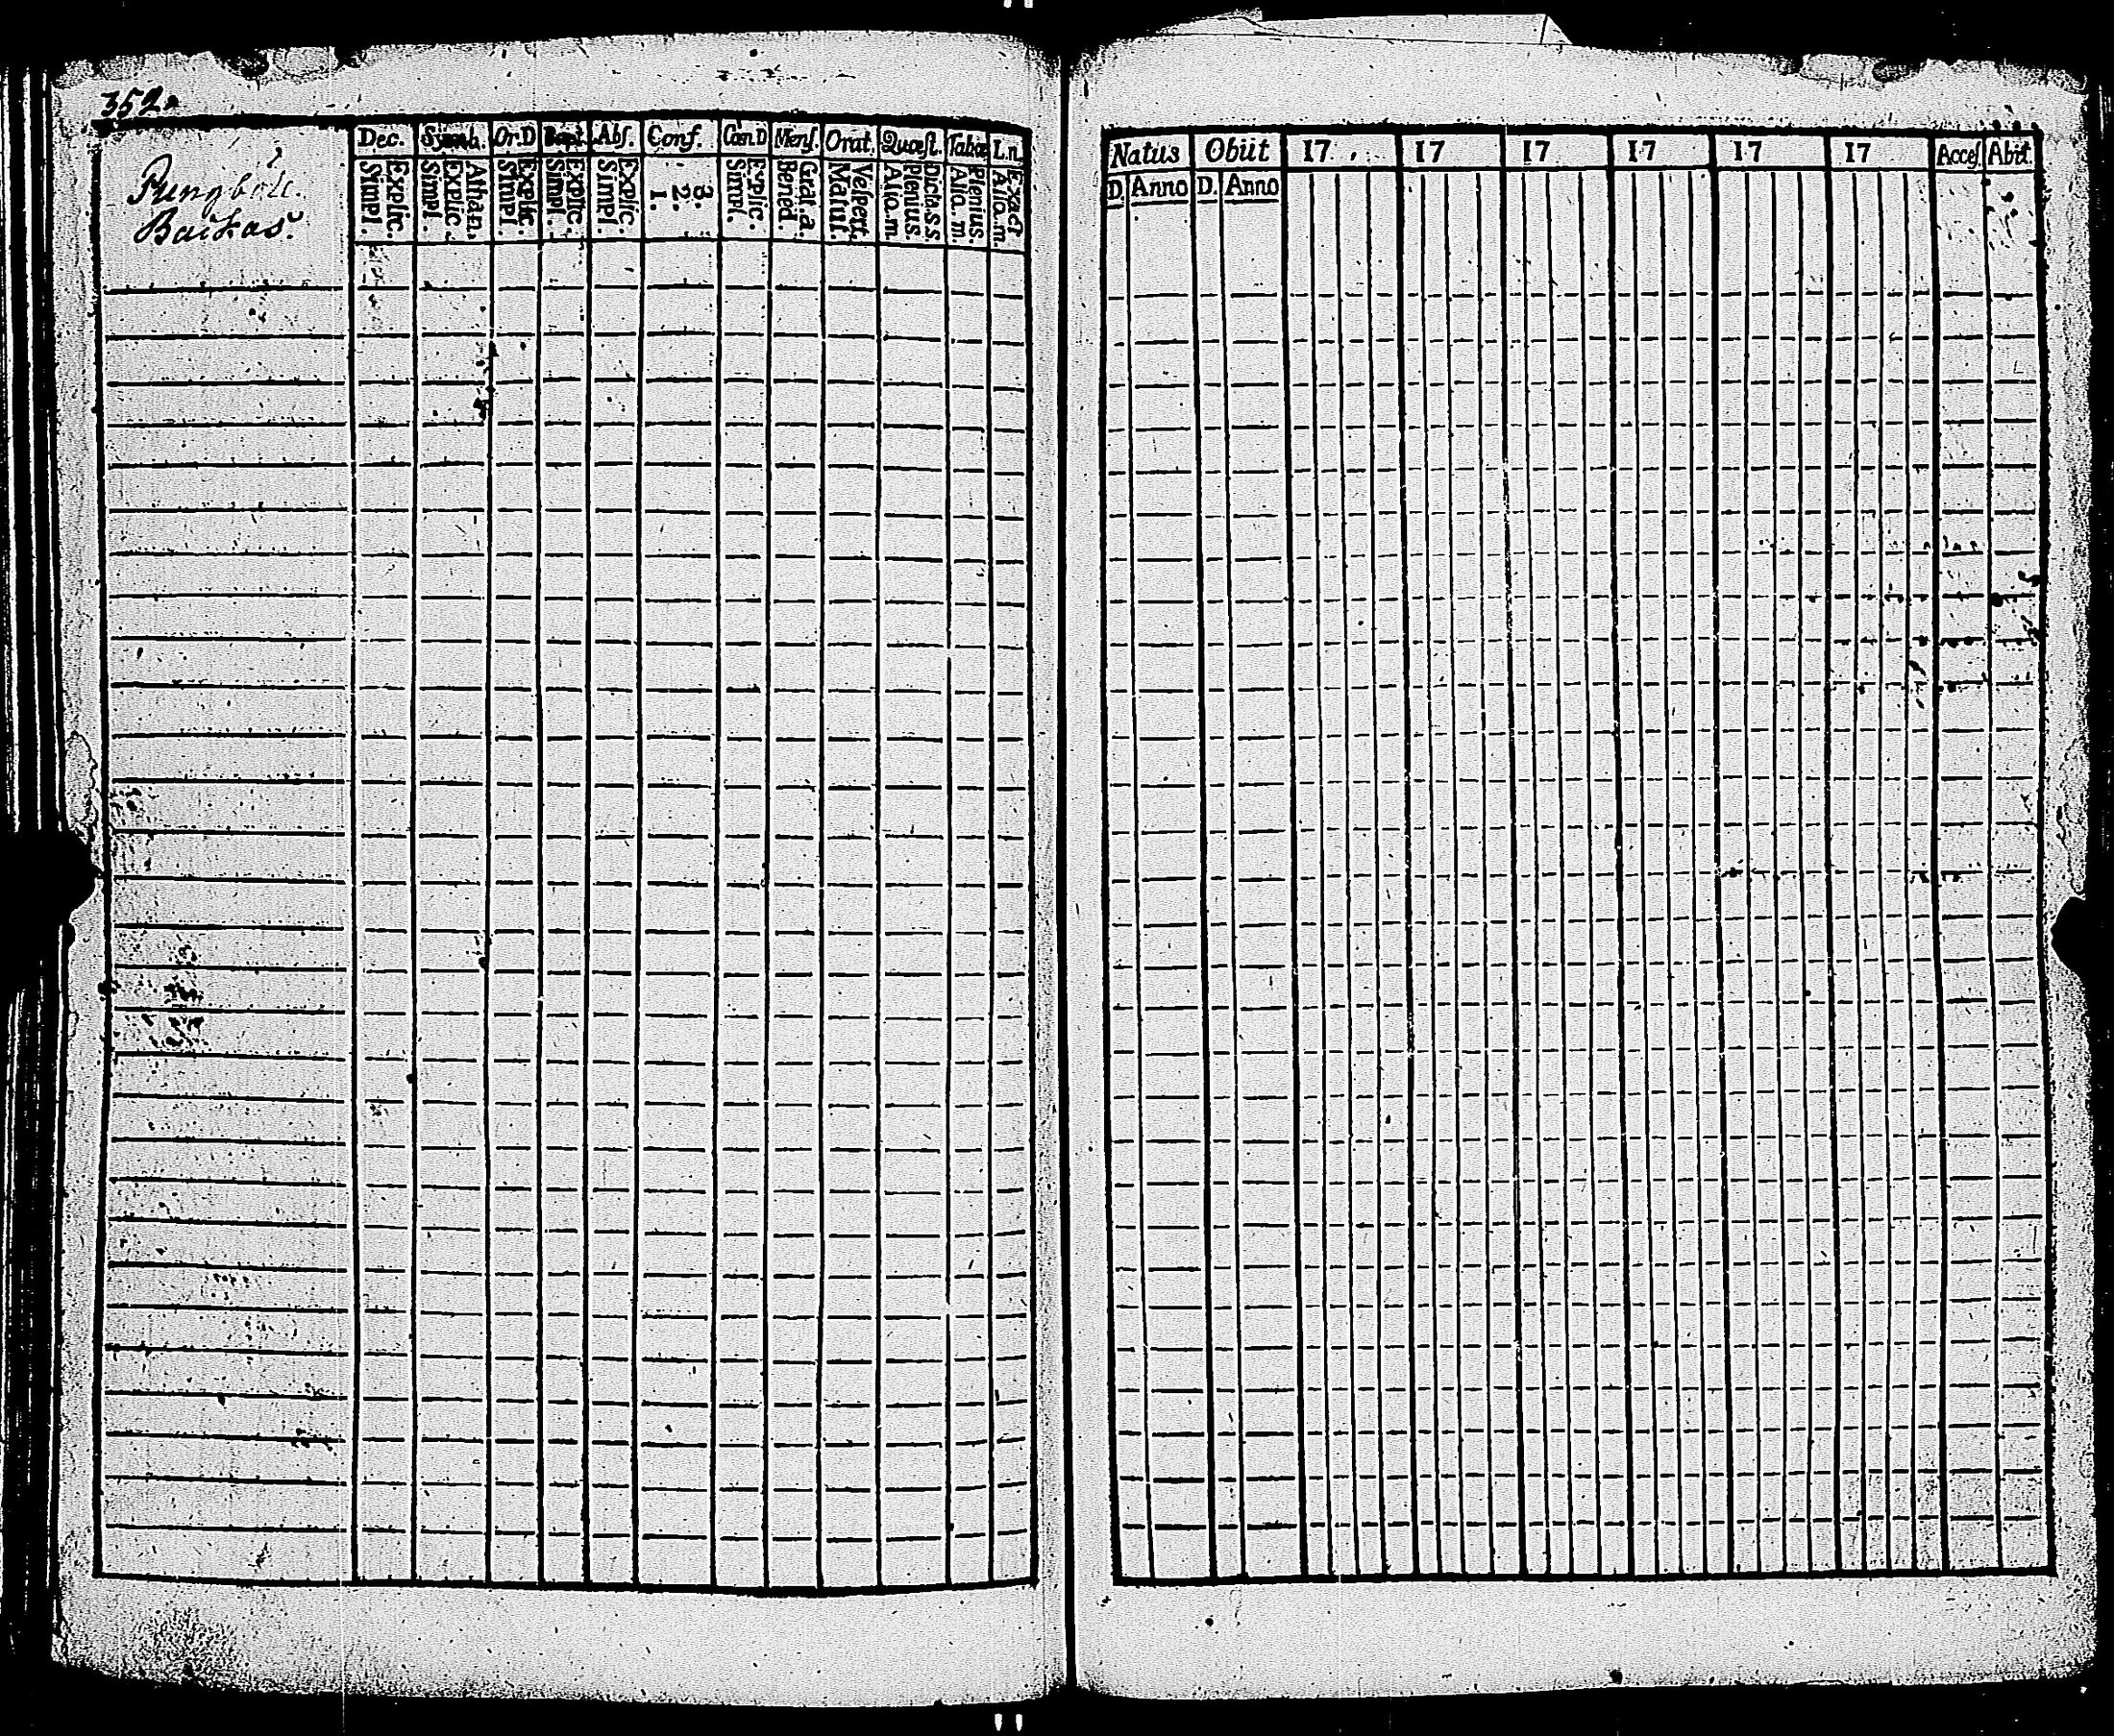 352.
Dec. Symb. Or.D Bapt. Abs. Conf. Can.D Mens. Orat. Quæst. Tabæ L.n.
Explic. Simpl.
Athan. Explic. Simpl.
Explic. Simpl.
Explic. Simpl.
Explic. Simpl.
3. 2. 1.
Explic. Simpl.
Grat.a. Bened.
Vespert. Matut.
Dicta.s.s Plenius. Aliq.m.
Plenius. Aliq.m.
Exact Aliq.m.
Pungböle.
Backas.
Natus Obiit 17 17 17 17 17 17 Acces. Abit.
D. Anno D. Anno